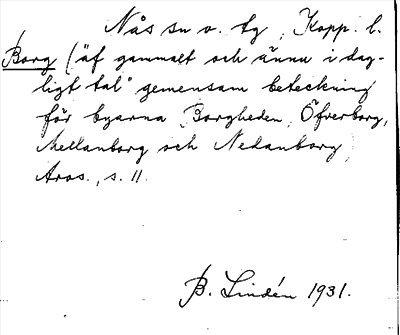 Nås sn o. tg, Kopp. l.
Borg ("äf gammalt och ännu i dag-
ligt tal" gemensam beteckning
för byarna Borgheden, Öfverborg,
Mellanborg och Nedanborg,
Aros., s. 11.
B. Lindén 1931.